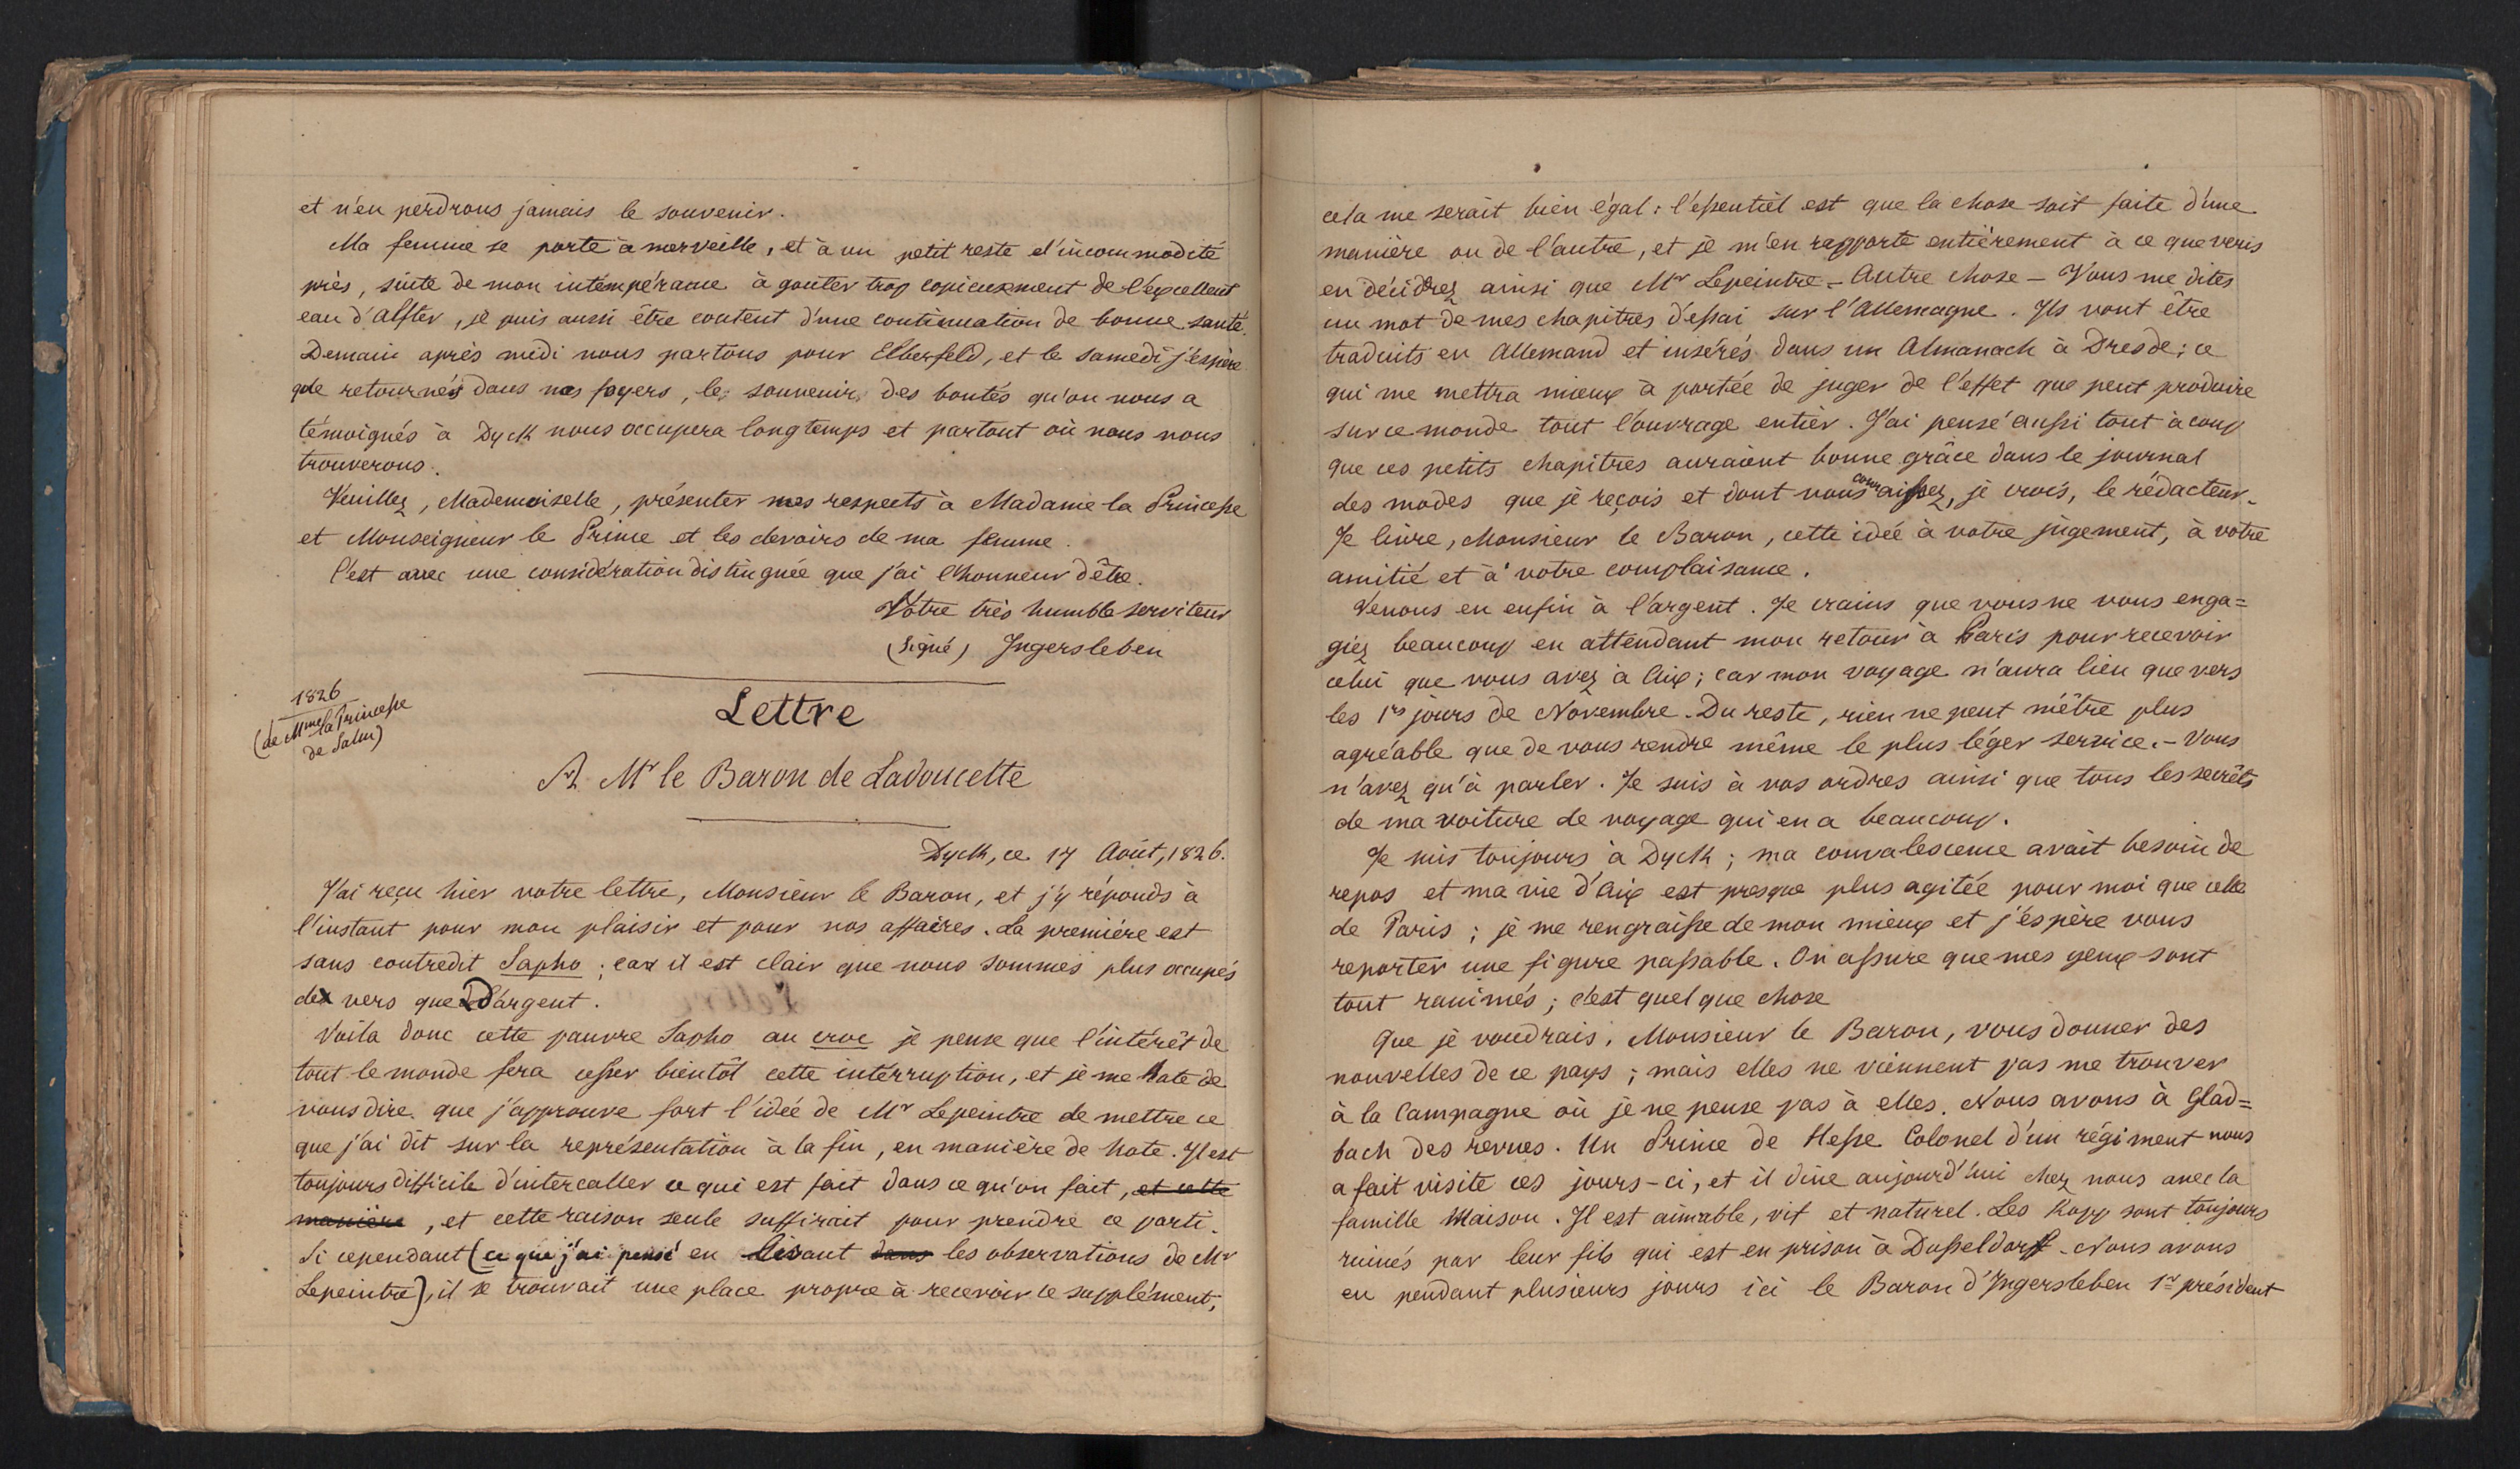 et n'en perdrons jamais le souvenir.
Ma femme se porte à merveille, et à un petit reste d'incommodité
près, suite de mon intempérance à gouter trop copieusement de l'excellent
eau d'Alfter, je puis aussi être content d'une continuation de bonne santé.
Demain après midi nous partons pour Elberfeld, et le samedi j'espère
que retournés dans nos foyers, le souvenir des bontés qu'on nous a
témoignés à Dyck nous occupera longtemps et partout où nous nous
trouverons.
Veuillez, Mademoiselle, présenter mes respects à Madame la Princesse
et Monseigneur le Prince et les devoirs de ma femme.
C'est avec une considération distinguée que j'ai l'honneur d'être.
Votre très humble serviteur
(Signé) Ingersleben
1826
(de Mme la Princesse
de Salm)
Lettre
A Mr le Baron de Ladoucette
Dyck, ce 17 Août, 1826.
J'ai reçu hier votre lettre, Monsieur le Baron, et j'y réponds à
l'instant pour mon plaisir et pour nos affaires. La première est
sans contredit Sapho; car il est clair que nous sommes plus occupés
de vers que D'argent.
Voila donc cette pauvre Sapho au croc je pense que l'intérêt de
tout le monde fera cesser bientôt cette intérruption, et je me hate de
vous dire que j'approuve fort l'idée de Mr Lepeintre de mettre ce
que j'ai dit sur la représentation à la fin, en manière de note. Il est
toujours difficile d'intercaller ce qui est fait dans ce qu'on fait, et cette
manière, et cette raison seule suffirait pour prendre ce parti.
Si cependant (ce que j'ai pensé en lisant dans les observations de Mr
Lepeintre), il se trouvait une place propre à recevoir ce supplément,
cela me serait bien égal: l'essentiel est que la chose soit faite d'une
manière ou de l'autre, et je m'en rapporte entièrement à ce que vous
en déciderez ainsi que Mr Lepeintre - Autre chose - Vous me dites
un mot de mes chapitres d'essai sur l'Allemagne. Ils vont être
traduits en Allemand et insérés dans un Almanach à Dresde; ce
qui me mettra mieux à portée de juger de l'effet que peut produire
sur ce monde tout l'ouvrage entier. J'ai pensé aussi tout à coup
que ces petits chapitres auraient bonne grâce dans le journal
des modes que je reçois et dont vous connaissez, je crois, le rédacteur.
Je livre, Monsieur le Baron, cette idée à votre jugement, à votre
amitié et à votre complaisance.
Venons en enfin à l'argent. Je crains que vous ne vous enga=
giez beaucoup en attendant mon retour à Paris pour recevoir
celui que vous avez à Aix; car mon voyage n'aura lieu que vers
les 1rs jours de Novembre. Du reste, rien ne peut m'être plus
agréable que de vous rendre même le plus léger service. - Vous
n'avez qu'à parler. Je suis à vos ordres ainsi que tous les secrêts
de ma voiture de voyage qui en a beaucoup.
Je suis toujours à Dyck; ma convalescence avait besoin de
repos et ma vie d'Aix est presque plus agitée pour moi que celle
de Paris; je me rengraisse de mon mieux et j'éspère vous
reporter une figure passable. On assure que mes yeux sont
tout ranimés; c'est quelque chose
Que je voudrais, Monsieur le Baron, vous donner des
nouvelles de ce pays; mais elles ne viennent pas me trouver
à la Campagne où je ne pense pas à elles. Nous avons à Glad=
bach des revues. Un Prince de Hesse Colonel d'un régiment nous
a fait visite ces jours-ci, et il dine aujourd'hui chez nous avec la
famille Maison. Il est aimable, vif et naturel. Les Kopp sont toujours
ruinés par leur fils qui est en prison à Dusseldorff. Nous avons
eu pendant plusieurs jours ici le Baron d'Ingersleben 1er président